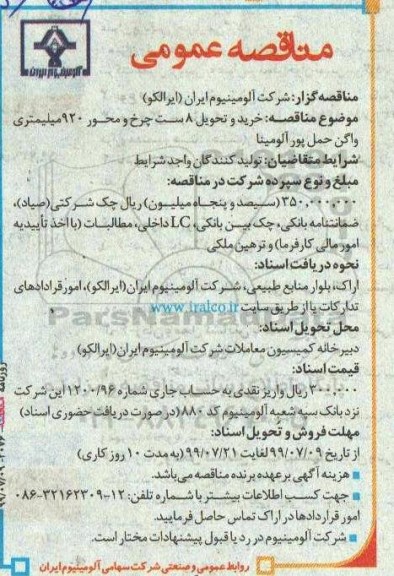 مناقصه عمومی
آلومینیوم ایران
مناقصه گزار: شرکت آلومینیوم ایران (ایرالکو)
موضوع مناقصه: خرید و تحویل ۸ ست چرخ و محور ۹۲۰ میلیمتری
واگن حمل پور آلومینا
شرایط متقاضیان: تولید کنندگان واجد شرایط
مبلغ و نوع سپرده شرکت در مناقصه:
۳۵۰,۰۰۰,۰۰۰ (سیصد و پنجاه میلیون) ریال چک شرکتی (صیاد)،
ضمانتنامه بانکی، چک بین بانکی، LC داخلی، مطالبات (با اخذ تأییدیه
امور مالی کارفرما) و ترهین ملکی
نحوه دریافت اسناد:
اراک، بلوار منابع طبیعی، شرکت آلومینیوم ایران (ایرالکو)، امور قراردادهای
تدارکات یا از طریق سایت www.iralco.ir
محل تحویل اسناد:
دبیرخانه کمیسیون معاملات شرکت آلومینیوم ایران (ایرالکو)
قیمت اسناد:
۳۰۰,۰۰۰ ریال واریز نقدی به حساب جاری شماره ۱۲۰۰/۹۶ این شرکت
نزد بانک سپه شعبه آلومینیوم کد ۸۸۰ (در صورت دریافت حضوری اسناد)
مهلت فروش و تحویل اسناد:
از تاریخ ۹۹/۰۷/۰۹ لغایت ۹۹/۰۷/۲۱ (به مدت ۱۰ روز کاری)
هزینه آگهی بر عهده برنده مناقصه می‌باشد.
جهت کسب اطلاعات بیشتر با شماره تلفن: ۱۲-۳۲۱۶۲۳۰۹-۰۸۶
امور قراردادها در اراک تماس حاصل فرمایید.
شرکت آلومینیوم در رد یا قبول پیشنهادات مختار است.
روابط عمومی و صنعتی شرکت سهامی آلومینیوم ایران
ParsNamadData
روزنامه
۹۹/۰۷/۰۹